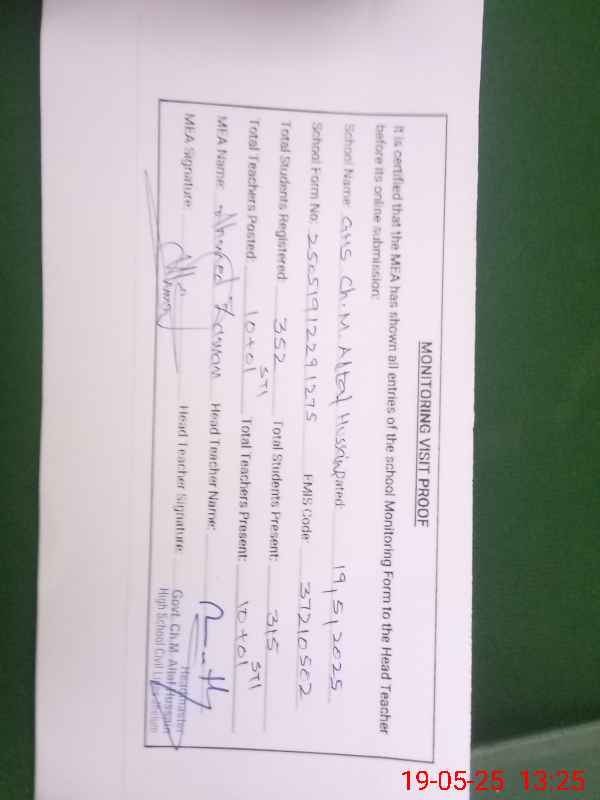 MONITORING VISIT PROOF
It is certified that the MEA has shown all entries of the school Monitoring Form to the Head Teacher
before its online submission:
School Name: GHS Ch.M. Altaf Hussain Dated: 19/5/2025
School Form No: 25051912291275 EMIS Code: 37210502
Total Students Registered: 352 Total Students Present: 315
Total Teachers Posted: 10+01 STI Total Teachers Present: 10+01 STI
MEA Name: Ahmed Head Teacher Name:
MEA Signature: Head Teacher Signature:
Headmaster
Govt. Ch.M. Altaf Hussain
High School Civil
19-05-25 13:25